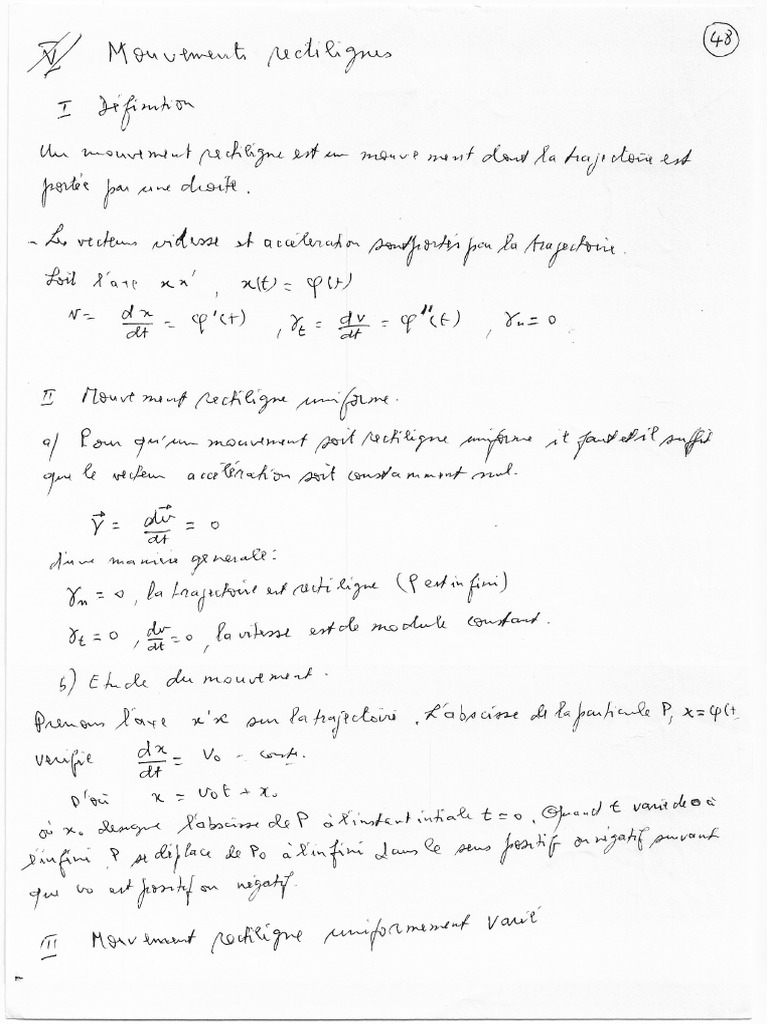 48
V/ Mouvements rectilignes
I Définition
Un mouvement rectiligne est un mouvement dont la trajectoire est
portée par une droite.
- Les vecteurs vitesse et accéleration sont portés par la trajectoire.
Soit l'axe xx', x(t) = φ(t)
v = dx/dt = φ'(t) , γt = dv/dt = φ''(t) , γn = 0
II Mouvement rectiligne uniforme.
a/ Pour qu'un mouvement soit rectiligne uniforme il faut et il suffit
que le vecteur accélération soit constamment nul.
γ⃗ = dv⃗/dt = 0
d'une manière generale :
γn = 0, la trajectoire est rectiligne (ρ est infini)
γt = 0, dv/dt = 0, la vitesse est de module constant.
b) Etude du mouvement.
Prenons l'axe x'x sur la trajectoire. L'abscisse de la particule P, x = φ(t
verifie dx/dt = v0 = conste.
D'où x = v0t + x0
où x0 désigne l'abscisse de P à l'instant intiale t = 0. Quand t varie de 0 à
l'infini P se déplace de P0 à l'infini dans le sens positif ou négatif suivant
que v0 est positif ou négatif.
III Mouvement rectiligne uniformement varié